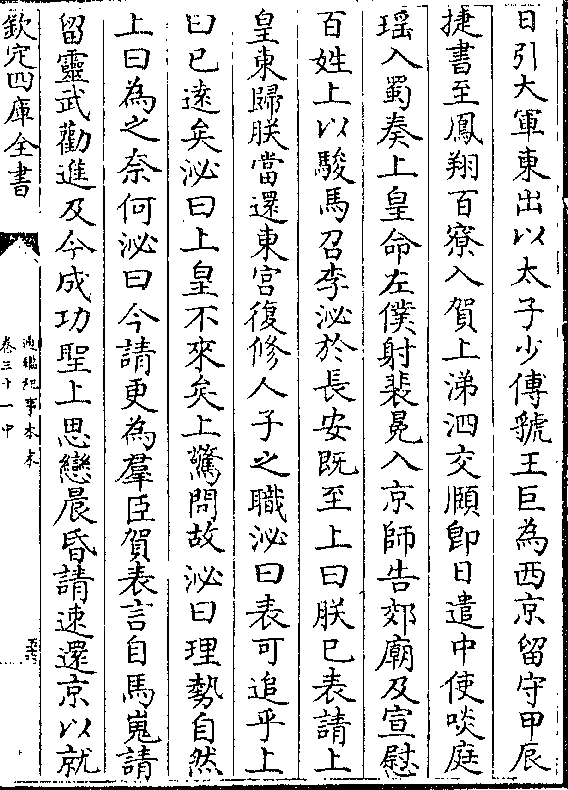 日引大軍東出以太子少傅虢王巨為西京留守甲辰
捷書至鳳翔百寮入賀上涕泗交頤即日遣中使啖庭
瑶入蜀奏上皇命左僕射裴冕入京師告郊廟及宣慰
百姓上以駿馬召李泌於長安既至上曰朕已表請上
皇東歸朕當還東宮復修人子之職泌曰表可追乎上
曰已逺矣泌曰上皇不來矣上驚問故泌曰理勢自然
上曰為之奈何泌曰今請更為羣臣賀表言自馬嵬請
留靈武勸進及今成功聖上思戀晨昏請速還京以就
欽定四庫全書
通鑑紀事本末
卷三十一中